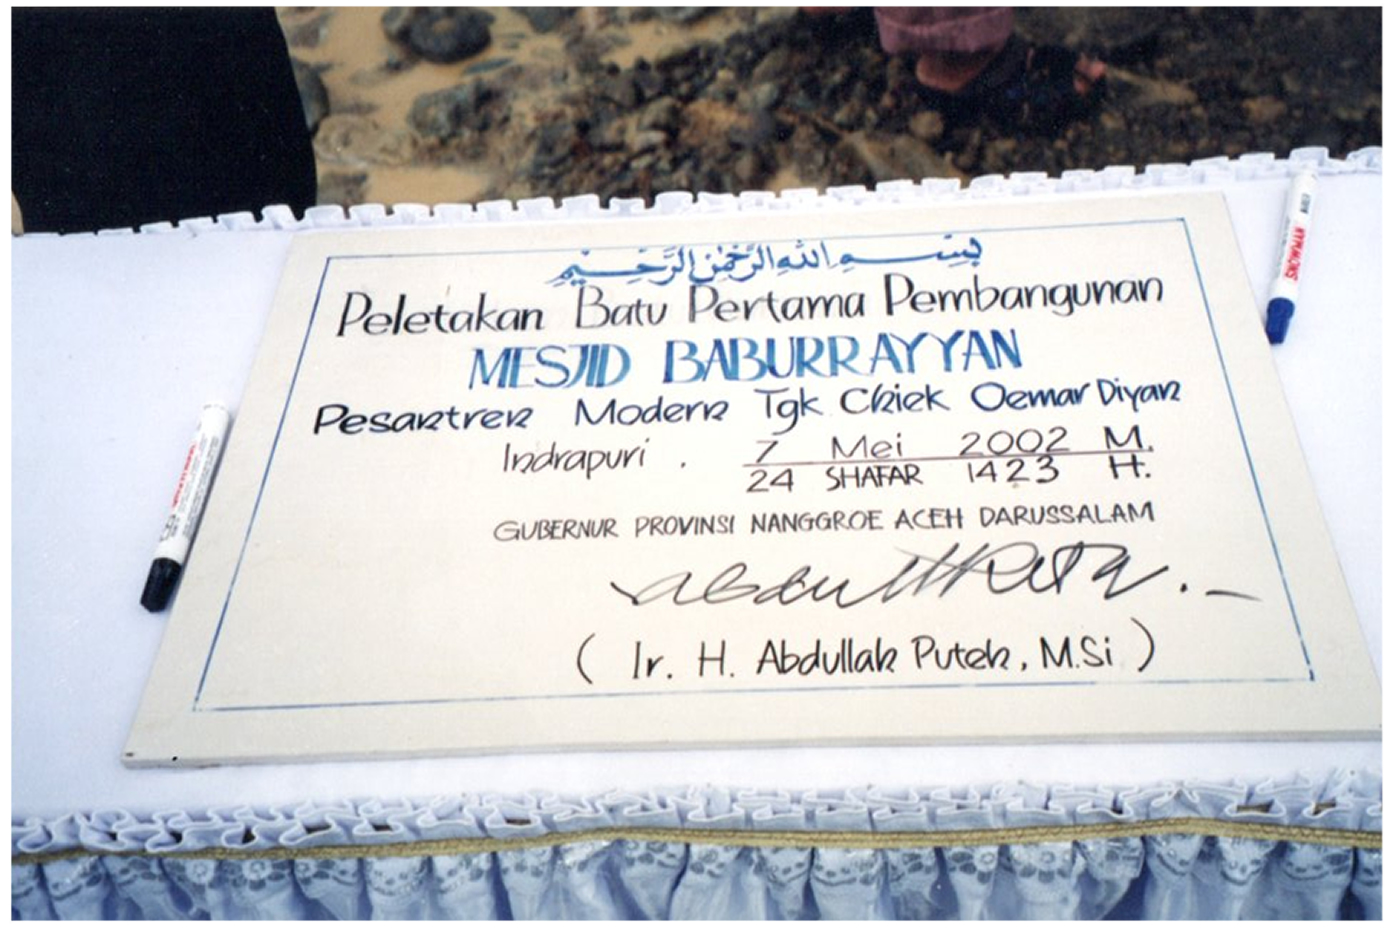 بِسْمِ اللهِ الرَّحْمٰنِ الرَّحِيْمِ
Peletakan Batu Pertama Pembangunan
MESJID BABURRAYYAN
Pesantren Modern Tgk Chiek Oemar Diyan
Indrapuri . 7 Mei 2002 M.
24 SHAFAR 1423 H.
GUBERNUR PROVINSI NANGGROE ACEH DARUSSALAM
( Ir. H. Abdullah Puteh, M.Si )